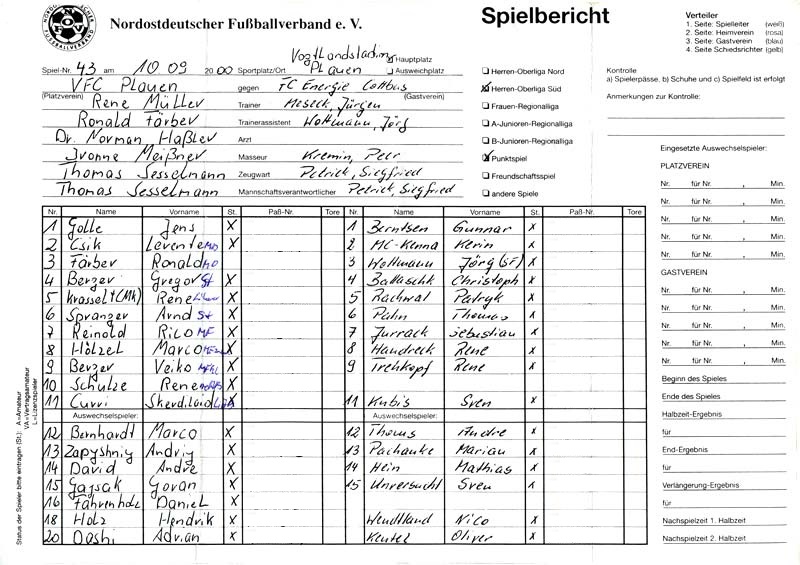 Nordostdeutscher Fußballverband e. V.
Spielbericht
Verteiler
1. Seite: Spielleiter (weiß)
2. Seite: Heimverein (rosa)
3. Seite: Gastverein (blau)
4. Seite Schiedsrichter (gelb)
Spiel-Nr. 43 am 10 09 20 00 Sportplatz/Ort Vogtlandstadion Plauen Hauptplatz Ausweichplatz
VFC Plauen gegen FC Energie Cottbus
(Platzverein) (Gastverein)
Rene Müller Trainer Heseck, Jürgen
Ronald Färber Trainerassistent Wottmann, Jörg
Dr. Norman Haßler Arzt
Ivonne Meißner Masseur Kremin, Petr
Thomas Sesselmann Zeugwart Petrick, Siegfried
Thomas Sesselmann Mannschaftsverantwortlicher Petrick, Siegfried
Herren-Oberliga Nord
Herren-Oberliga Süd
Frauen-Regionalliga
A-Junioren-Regionalliga
B-Junioren-Regionalliga
Punktspiel
Freundschaftsspiel
andere Spiele
Kontrolle
a) Spielerpässe, b) Schuhe und c) Spielfeld ist erfolgt
Anmerkungen zur Kontrolle:
Nr. Name Vorname St. Paß-Nr. Tore Nr. Name Vorname St. Paß-Nr. Tore
1 Golle Jens X 1 Berntsen Gunnar x
2 Csik Levente X 2 Mc-Kenna Kevin x
3 Färber Ronald 3 Wottmann Jörg (SF) x
4 Berger Gregor St X 4 Ballaschk Christoph x
5 Krasselt (MK) Rene X 5 Rachwal Patryk x
6 Spranger Arnd St X 6 Pahn Thomas x
7 Reinold Rico MF X 7 Jurrack Sebastian x
8 Hölzel Marco X 8 Handreck Rene x
9 Berger Veiko X 9 Trehkopf Rene x
10 Schulze Rene X
11 Curri Skerdilaid X 11 Kubis Sven x
Auswechselspieler: Auswechselspieler:
12 Bernhardt Marco X 12 Thoms Andre x
13 Zapyshnig Andriy X 13 Pachanke Marian x
14 David Andre X 14 Hein Mathias x
15 Gajsak Goran X 15 Unversucht Sven x
16 Fährenholz Daniel X
18 Holz Hendrik X Wendtland Nico x
20 Dashi Adrian X Keutel Oliver x
Status der Spieler bitte eintragen (St.): A=Amateur
VA=Vertragsamateur
L=Lizenzspieler
Eingesetzte Auswechselspieler:
PLATZVEREIN
Nr. für Nr. , Min.
Nr. für Nr. , Min.
Nr. für Nr. , Min.
Nr. für Nr. , Min.
Nr. für Nr. , Min.
GASTVEREIN
Nr. für Nr. , Min.
Nr. für Nr. , Min.
Nr. für Nr. , Min.
Nr. für Nr. , Min.
Nr. für Nr. , Min.
Beginn des Spieles
Ende des Spieles
Halbzeit-Ergebnis
für
End-Ergebnis
für
Verlängerung-Ergebnis
für
Nachspielzeit 1. Halbzeit
Nachspielzeit 2. Halbzeit